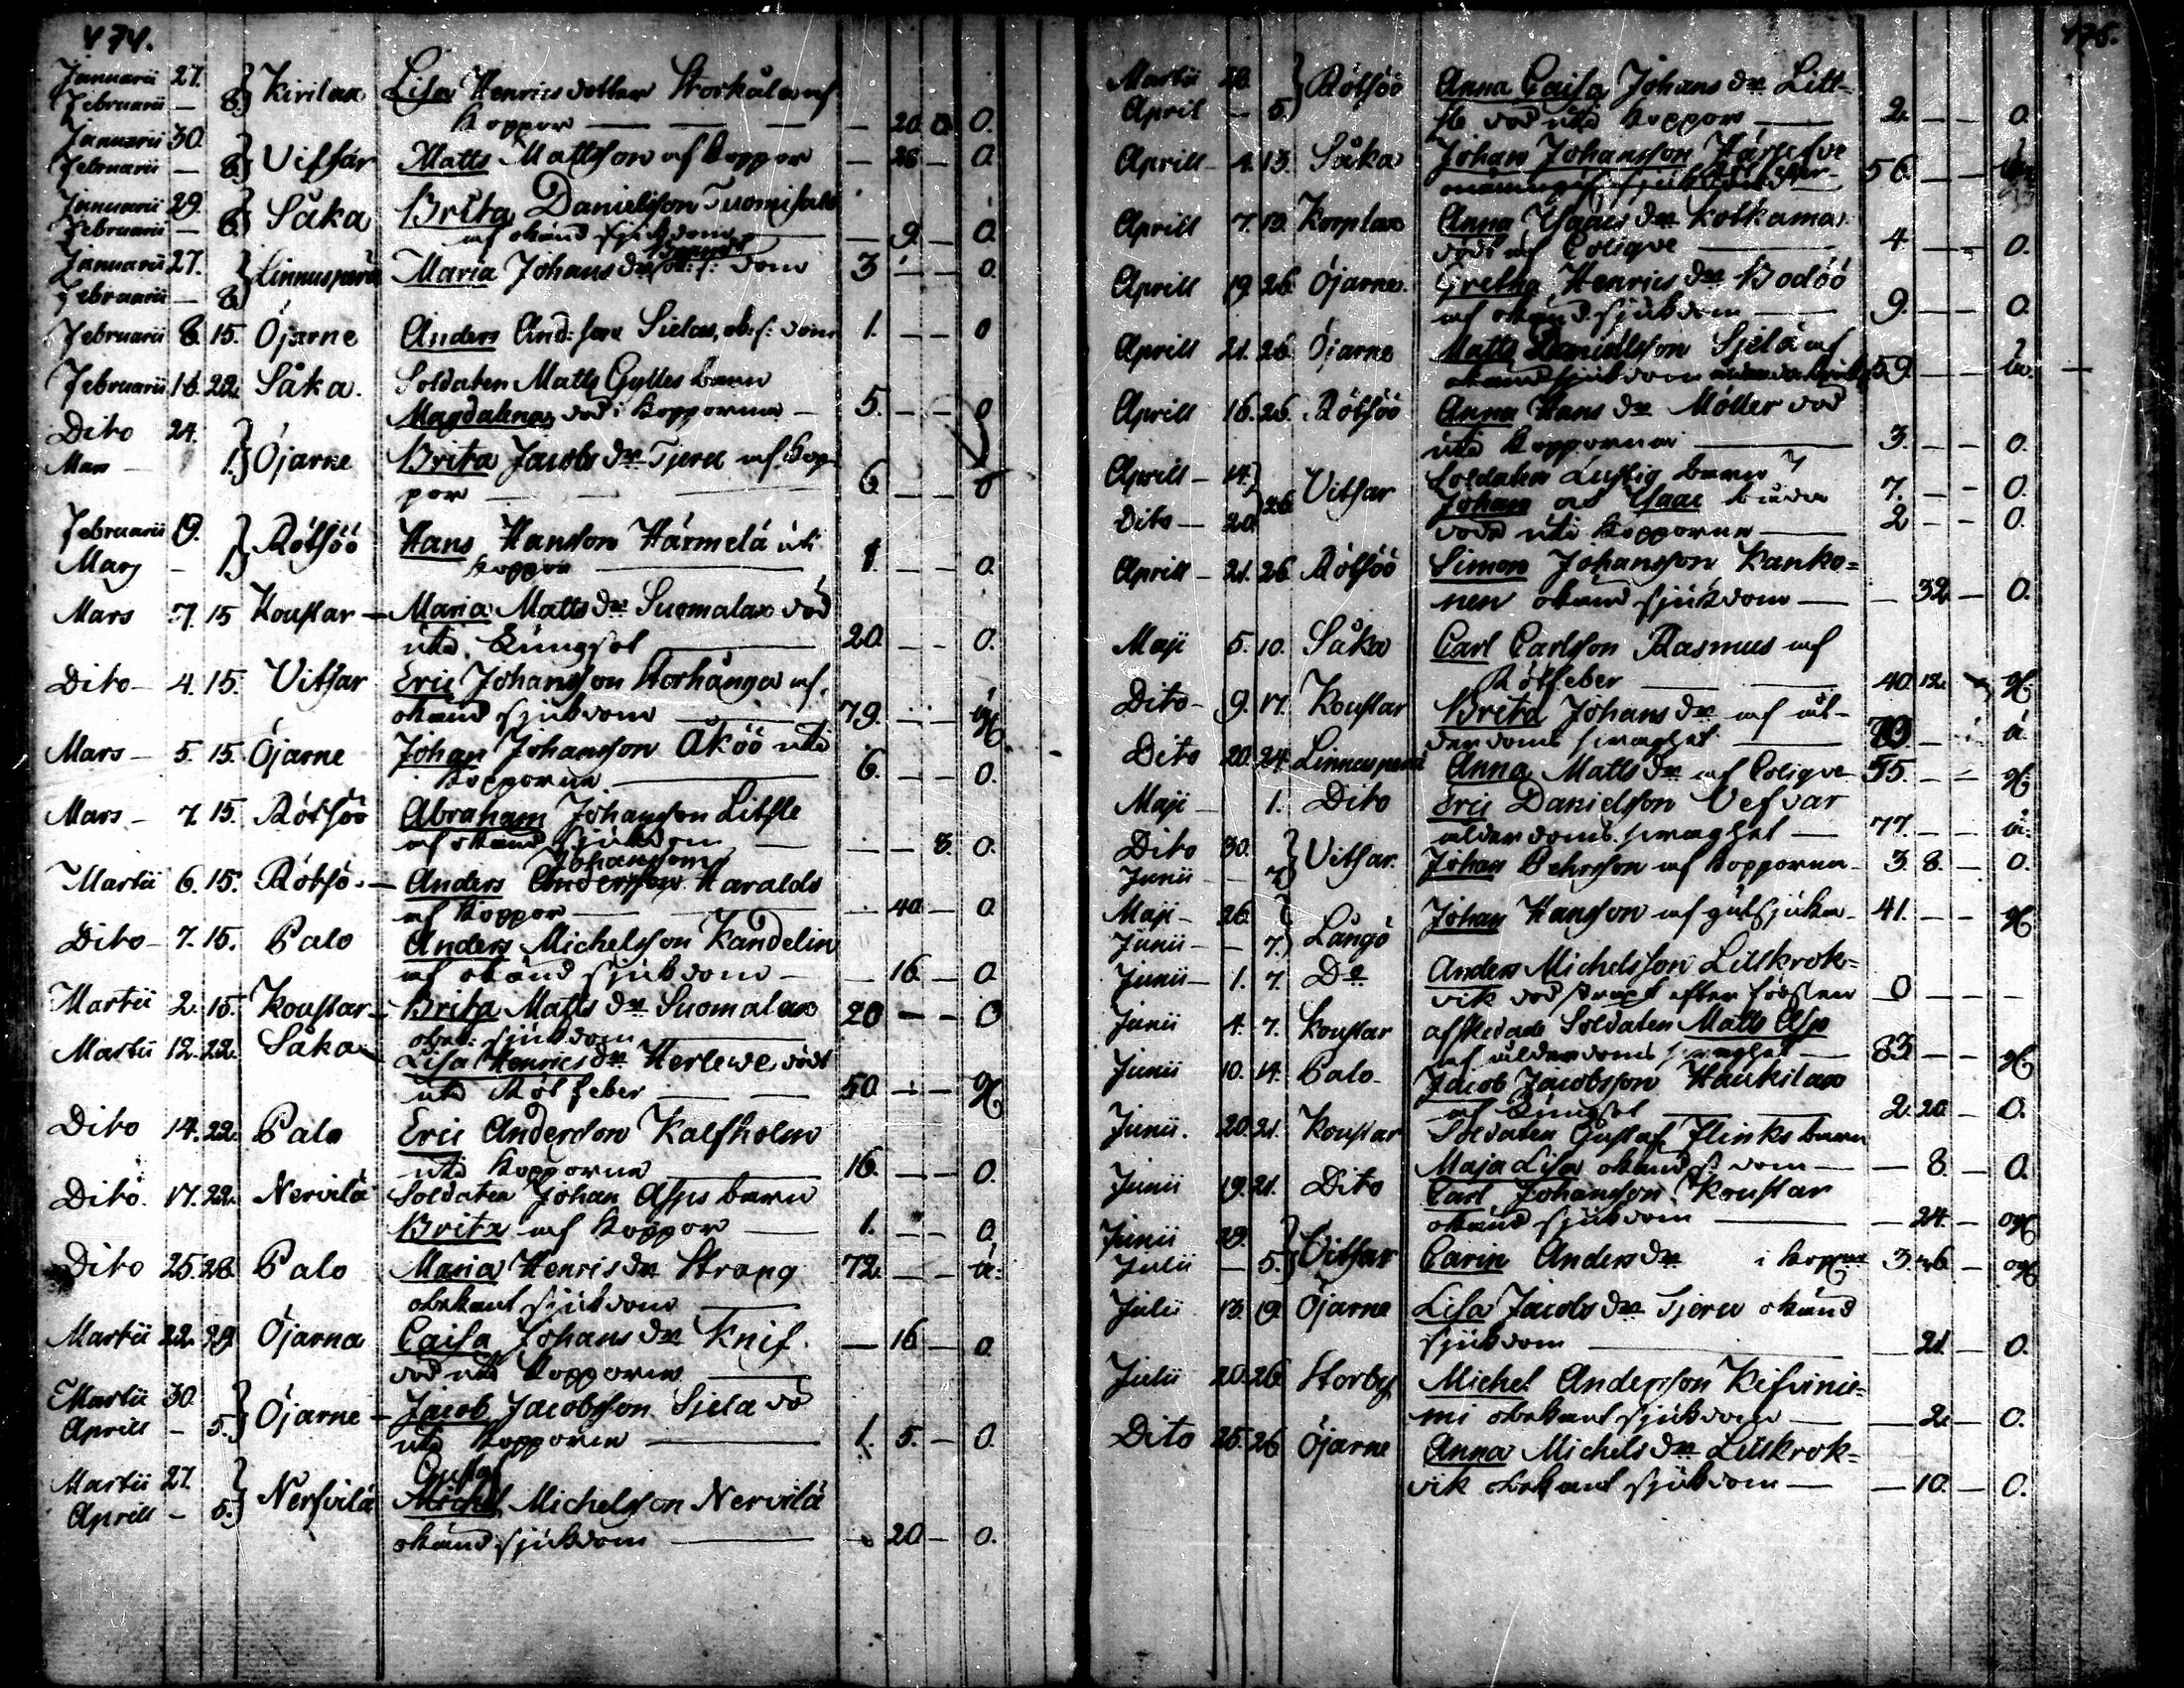 474.
Januarii 27. Kirilax Lisa Henricsdotter Storkåla af
Februarii — 8. Koppor — — — — 20. 0. 0.
Januarii 30. Vitsar Matts Mattsson af koppor — 28 — 0.
Februarii — 8.
Januarii 29. Såka Brita Danielsson Tuomisalo
Februarii — 8. af okänd sjukdom — 9. — 0.
Januarii 27. Linnuspärä Maria Johans dr ob: s: dom 3 — — 0.
Februarii — 8.
Februarii 8. 15. Öjarne Anders And: son Sielas, ob: s: dom 1. — — 0
Februarii 16. 22. Såka. Soldaten Matts Gylles barn
Magdalena, död i kopporna — 5. — — 0
Dito 24. Öjarne Brita Jacobs dr Tjeru af kop
Mars — 1. por — 6. — — 0
Februarii 19. Rötsöö Hans Hansson Härmelä uti
Mars — 1. koppor — 1. — — 0.
Mars 7. 15 Koustar — Maria Matts dr Suomalax död
uti Lungsot — 20. — — 0.
Dito — 4. 15. Vitsar Eric Johansson Storhånga af
okänd sjukdom — 79. — —
Mars — 5. 15. Öjarne Johan Johansson Åköö uti
kopporna. — 6. — — 0.
Mars — 7. 15. Rötsöö Abraham Johansson Litsle
af okänd sjukdom — — — 8. 0.
Johansson
Martii 6. 15. Rötsö — Anders Andersson Haralds
af koppor — — 40 — 0.
Dito — 7. 15. Palo Anders Michelsson Kandelin
af okänd sjukdom — — 16 — 0
Martii 2. 15. Koustar — Brita Matts dr Suomalax 20 — — 0
obek: sjukdom
Martii 12. 22. Såka Lisa Henrics dr Herlewe, död
uti Rötfeber — 50 — — g
Dito 14. 22. Palo Eric Andersson Kalfholm
uti kopporna — 16. — — 0.
Dito. 17. 22. Nervilä Soldaten Johan Asps barn
Brita af koppor — 1. — — 0.
Dito 25. 28. Palo Maria Henris dr Strang 72. — — ä.
obekant sjukdom —
Martii 22. 29 Öjarna Caisa Johans dr Knif. — 16 — 0.
död uti kopporna —
Martii 30. Öjarne — Jacob Jacobsson Sjela dö
Aprill — 5. uti kopporna — 1. 5. — 0.
Gustaf
Martii 27. Nerfvilä Michel Michelsson Nervilä
Aprill — 5. okänd sjukdom — — 20 — 0.
475.
Martii 30. Rötsöö Anna Caisa Johans dr Litt=
April — 5. sle död uti koppor — 2. — — 0.
Aprill — 4. 13. Såka Johan Johansson Härlefve
56 — —
Aprill 7. 19. Korplax Anna Isaacs dr Kotkamaa
död af Colique — 4 — — 0.
Aprill 19. 26. Öjarne. Gretha Henrics dr Bodöö
af okänd sjukdom — 9. — — 0.
Aprill 21. 26 Öjarne Matts Danielsson Sjelä af
okänd sjukdom 59. — —
Aprill 16. 26. Rötsöö Anna Hans dr Möller död
uti kopporna — 3. — — 0.
Aprill — 14. Vitsar Soldaten Lustig barn
26 Johan od Isaac båda 7. — — 0.
Dito — 20. döda uti kopporna — 2 — — 0.
Aprill — 21. 26 Rötsöö Simon Johansson Kanko=
nen okänd sjukdom — — 32 — 0.
Maji 5. 10. Såka Carl Carlsson Rasmus af
Rötfeber — 40 12. g.
Dito — 9. 17. Koustar Brita Johans dr af ål-
derdoms svaghet — — — ä
Dito 20. 24. Linnuspärä Anna Matts dr af Colique — 55. — — g.
Maji — 1. Dito Eric Danielsson Vefvar
ålderdoms svaghet — 77. — — ä.
Dito 30. Vitsar. Johan Pehrsson af kopporna — 3. 8. — 0.
Junii — 7.
Maji — 26. Långö Johan Hansson af gulsjuka — 41. — — g
Junii — — 7.
Junii — 1. 7. Do Anders Michelsson Lillkrok=
vik död strax efter födslen 0 — — —
Junii 4. 7. Koustar afskedade Soldaten Matts Asp
af ålderdoms svaghet — 83 — — g
Junii 10. 14. Palo — Jacob Jacobsson Haukilax
af Lungsot — 2. 20 — 0.
Junii. 20. 21. Koustar Soldaten Gustaf Flinks barn
Maja Lisa okänd s: dom — — 8. — 0.
Junii 19. 21. Dito Carl Johansson Koustar
okänd sjukdom — — 24. — og
Junii 29. Vitsar Carin Anders dr i koppor 3. 6 — og
Julii — 5.
Julii 13. 19. Öjarne Lisa Jacobs dr Tjeru okänd
sjukdom — 21. — 0.
Julii 20. 26 Storby Michel Andersson Kifvinie=
mi obekant sjukdom — — 2. — 0.
Dito 25. 26 Öjarne Anna Michels dr Lillkrok=
vik obekant sjukdom — — 10. — 0.